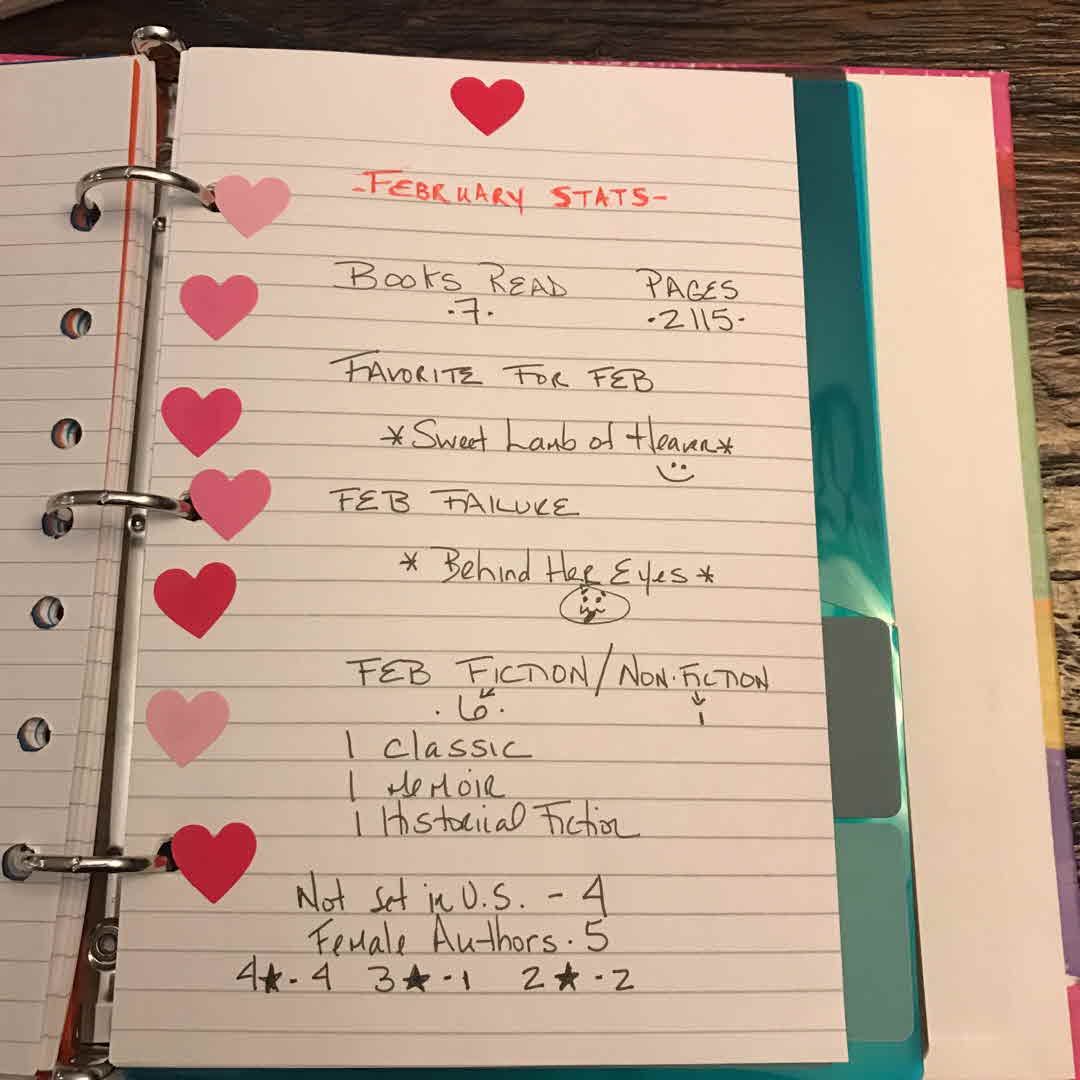 -FEBRUARY STATS-
BOOKS READ PAGES
·7· ·2115·
FAVORITE FOR FEB
*Sweet Lamb of Heaven*
FEB FAILURE
* Behind Her Eyes *
FEB FICTION/NON·FICTION
·6· 1
1 Classic
1 Memoir
1 Historiial Fiction
Not set in U.S. - 4
Female Authors · 5
4★ - 4 3★ - 1 2★ - 2